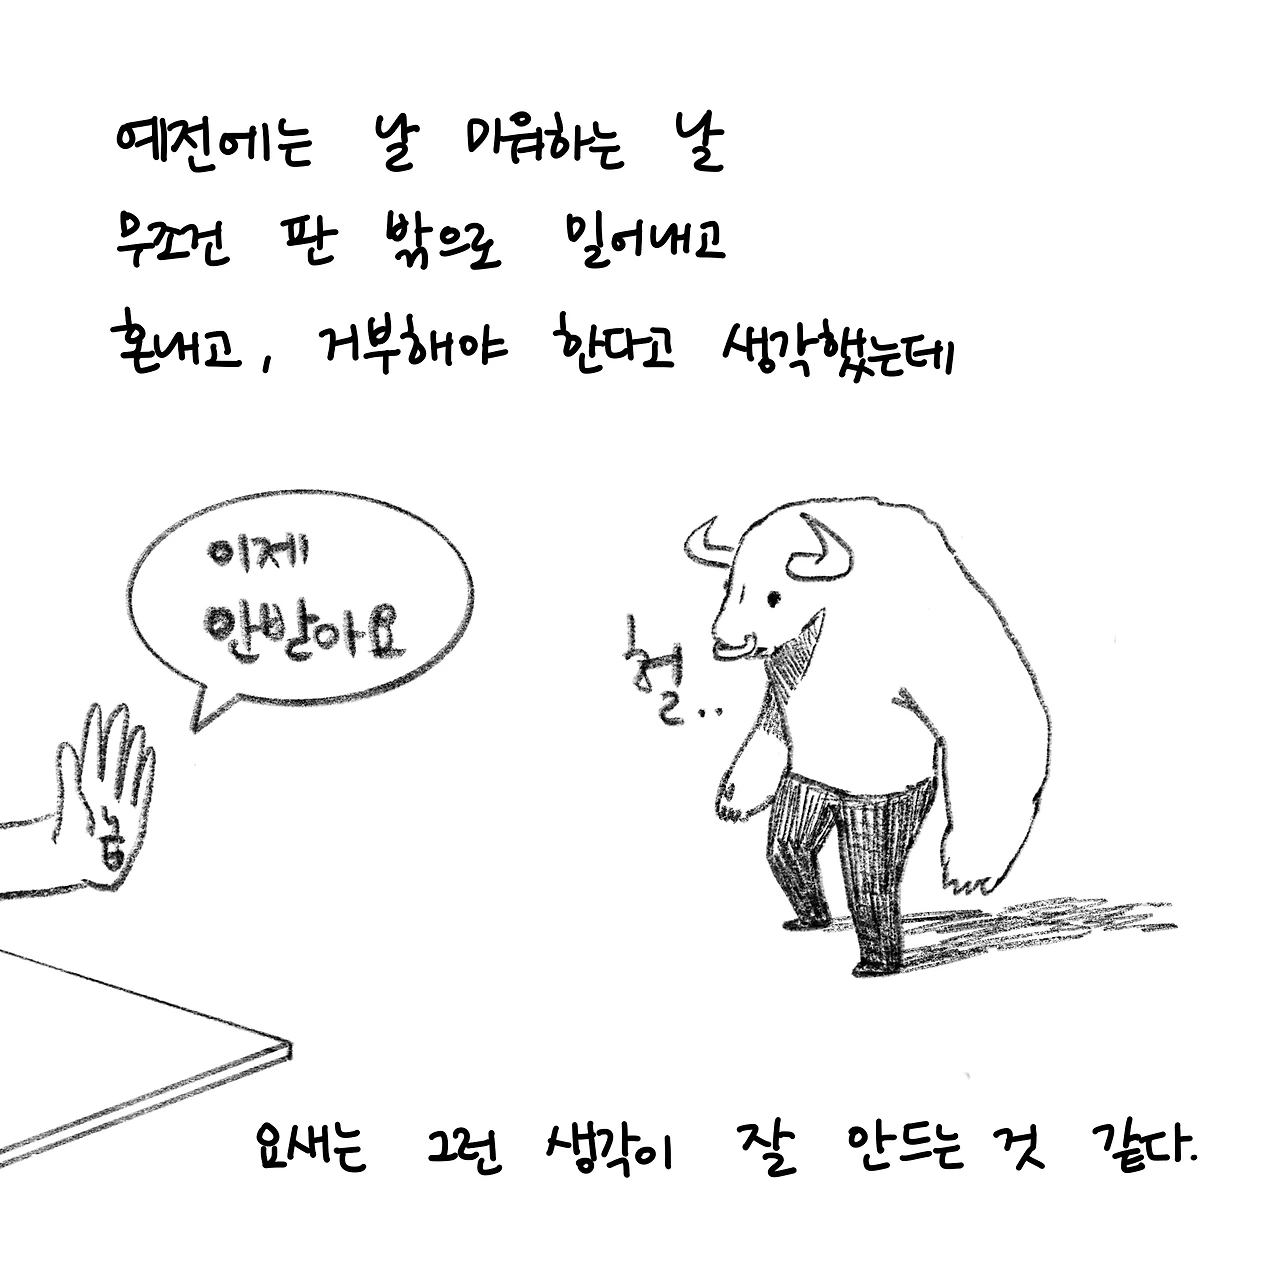 예전에는 날 미워하는 날
무조건 판 밖으로 밀어내고
혼내고, 거부해야 한다고 생각했는데
이제
안받아요
헐..
요새는 그런 생각이 잘 안드는 것 같다.